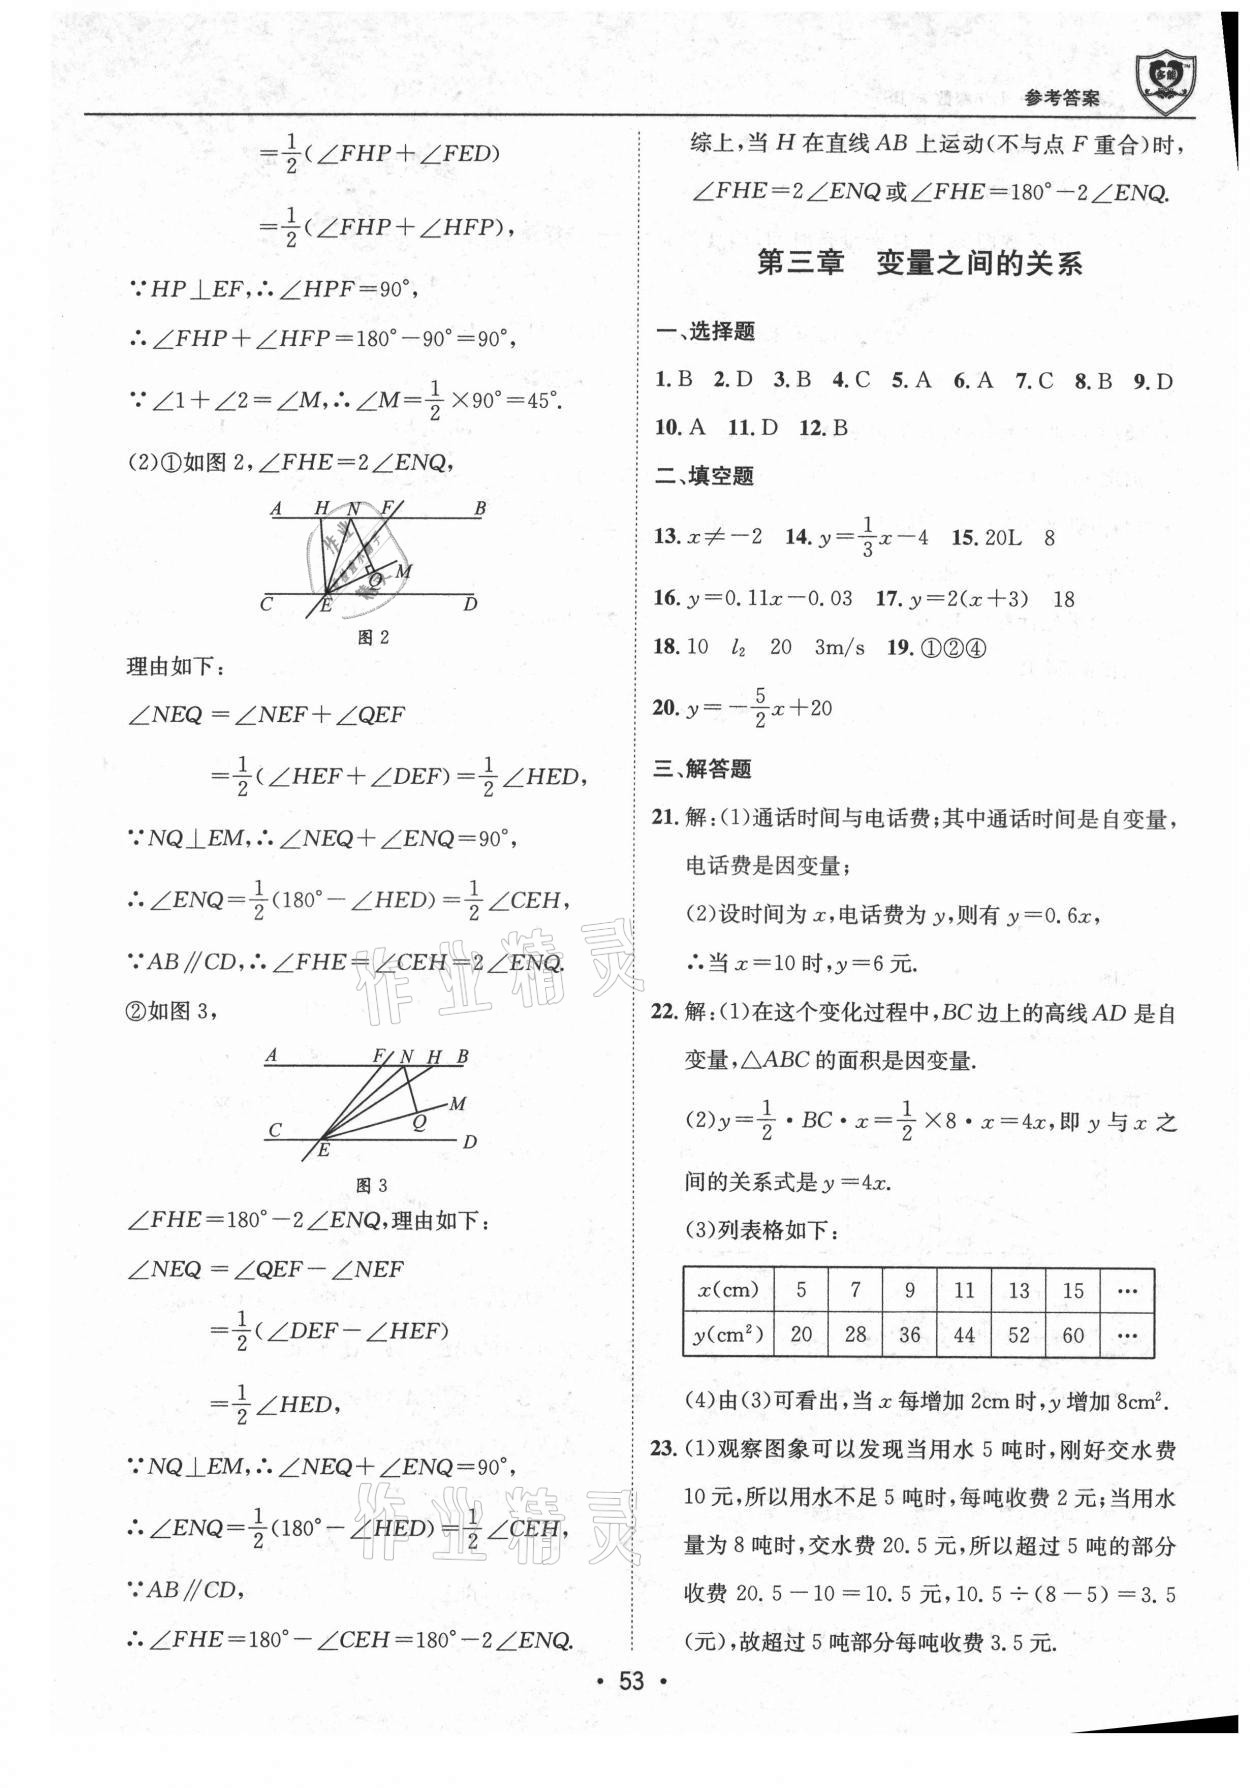 参考答案
多能
=1/2(∠FHP+∠FED)
=1/2(∠FHP+∠HFP),
∵HP⊥EF,∴∠HPF=90°,
∴∠FHP+∠HFP=180°-90°=90°,
∵∠1+∠2=∠M,∴∠M=1/2×90°=45°.
(2)①如图2,∠FHE=2∠ENQ,
A H N F B
Q M
C E D
图2
理由如下:
∠NEQ=∠NEF+∠QEF
=1/2(∠HEF+∠DEF)=1/2∠HED,
∵NQ⊥EM,∴∠NEQ+∠ENQ=90°,
∴∠ENQ=1/2(180°-∠HED)=1/2∠CEH,
∵AB∥CD,∴∠FHE=∠CEH=2∠ENQ.
②如图3,
A F N H B
M
Q
C E D
图3
∠FHE=180°-2∠ENQ,理由如下:
∠NEQ=∠QEF-∠NEF
=1/2(∠DEF-∠HEF)
=1/2∠HED,
∵NQ⊥EM,∴∠NEQ+∠ENQ=90°,
∴∠ENQ=1/2(180°-∠HED)=1/2∠CEH,
∵AB∥CD,
∴∠FHE=180°-∠CEH=180°-2∠ENQ.
综上,当H在直线AB上运动(不与点F重合)时,
∠FHE=2∠ENQ或∠FHE=180°-2∠ENQ.
第三章 变量之间的关系
一、选择题
1.B 2.D 3.B 4.C 5.A 6.A 7.C 8.B 9.D
10.A 11.D 12.B
二、填空题
13.x≠-2 14.y=1/3x-4 15.20L 8
16.y=0.11x-0.03 17.y=2(x+3) 18
18.10 l₂ 20 3m/s 19.①②④
20.y=-5/2x+20
三、解答题
21.解:(1)通话时间与电话费;其中通话时间是自变量,
电话费是因变量;
(2)设时间为x,电话费为y,则有y=0.6x,
∴当x=10时,y=6元.
22.解:(1)在这个变化过程中,BC边上的高线AD是自
变量,△ABC的面积是因变量.
(2)y=1/2·BC·x=1/2×8·x=4x,即y与x之
间的关系式是y=4x.
(3)列表格如下:
x(cm) 5 7 9 11 13 15 …
y(cm²) 20 28 36 44 52 60 …
(4)由(3)可看出,当x每增加2cm时,y增加8cm².
23.(1)观察图象可以发现当用水5吨时,刚好交水费
10元,所以用水不足5吨时,每吨收费2元;当用水
量为8吨时,交水费20.5元,所以超过5吨的部分
收费20.5-10=10.5元,10.5÷(8-5)=3.5
(元),故超过5吨部分每吨收费3.5元.
·53·
作业精灵
作业精灵